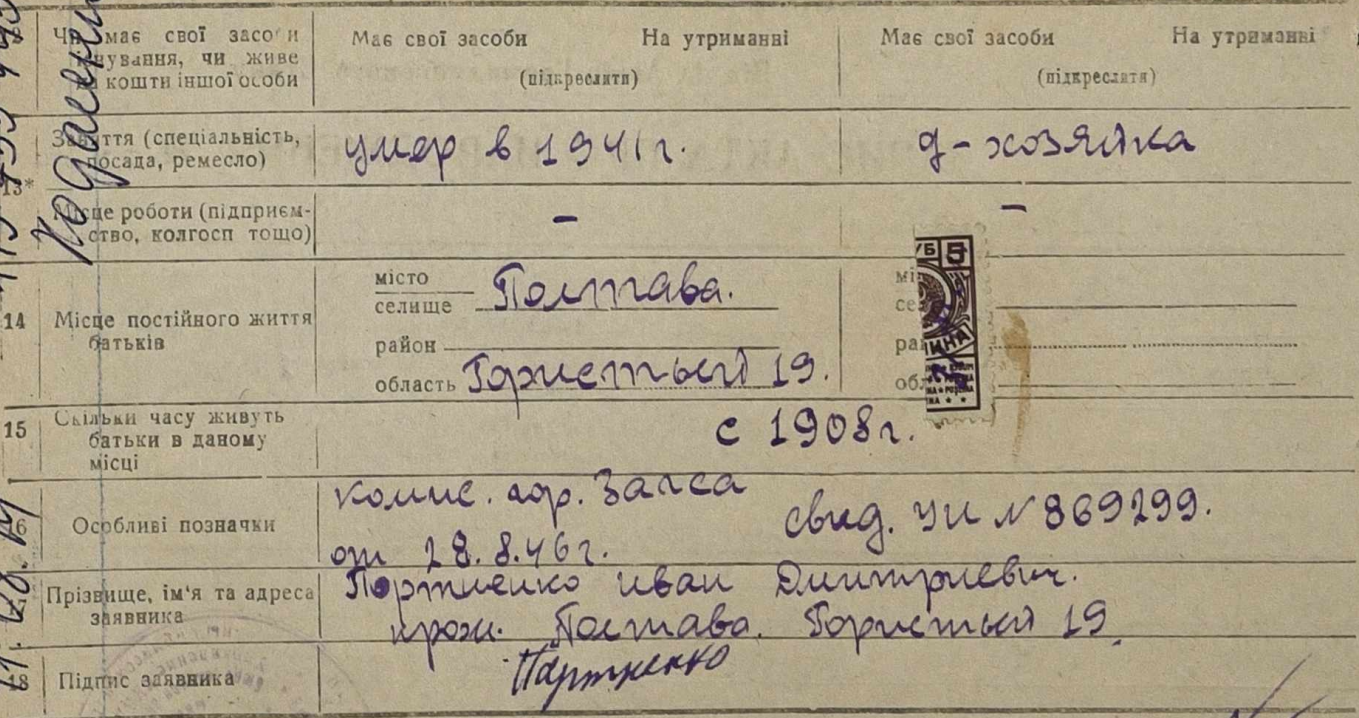 Чи має свої засоби існування, чи живе на кошти іншої особи
Має свої засоби На утриманні
(підкреслити)
Має свої засоби На утриманні
(підкреслити)
13*
Заняття (спеціальність, посада, ремесло)
умер в 1941 г.
д-хозяйка
Місце роботи (підприєм-
ство, колгосп тощо)
–
–
14
Місце постійного життя
батьків
місто
селище Полтава.
район
область Гористый 19.
5
15
Скільки часу живуть
батьки в даному
місці
с 1908 г.
16
Особливі позначки
комис. гор. Загса
от 28.8.46 г.
свид. УИ № 869299.
Прізвище, ім'я та адреса
заявника
Портненко Иван Дмитриевич.
прож. Полтава. Гористый 19.
18
Підпис заявника
Партненко